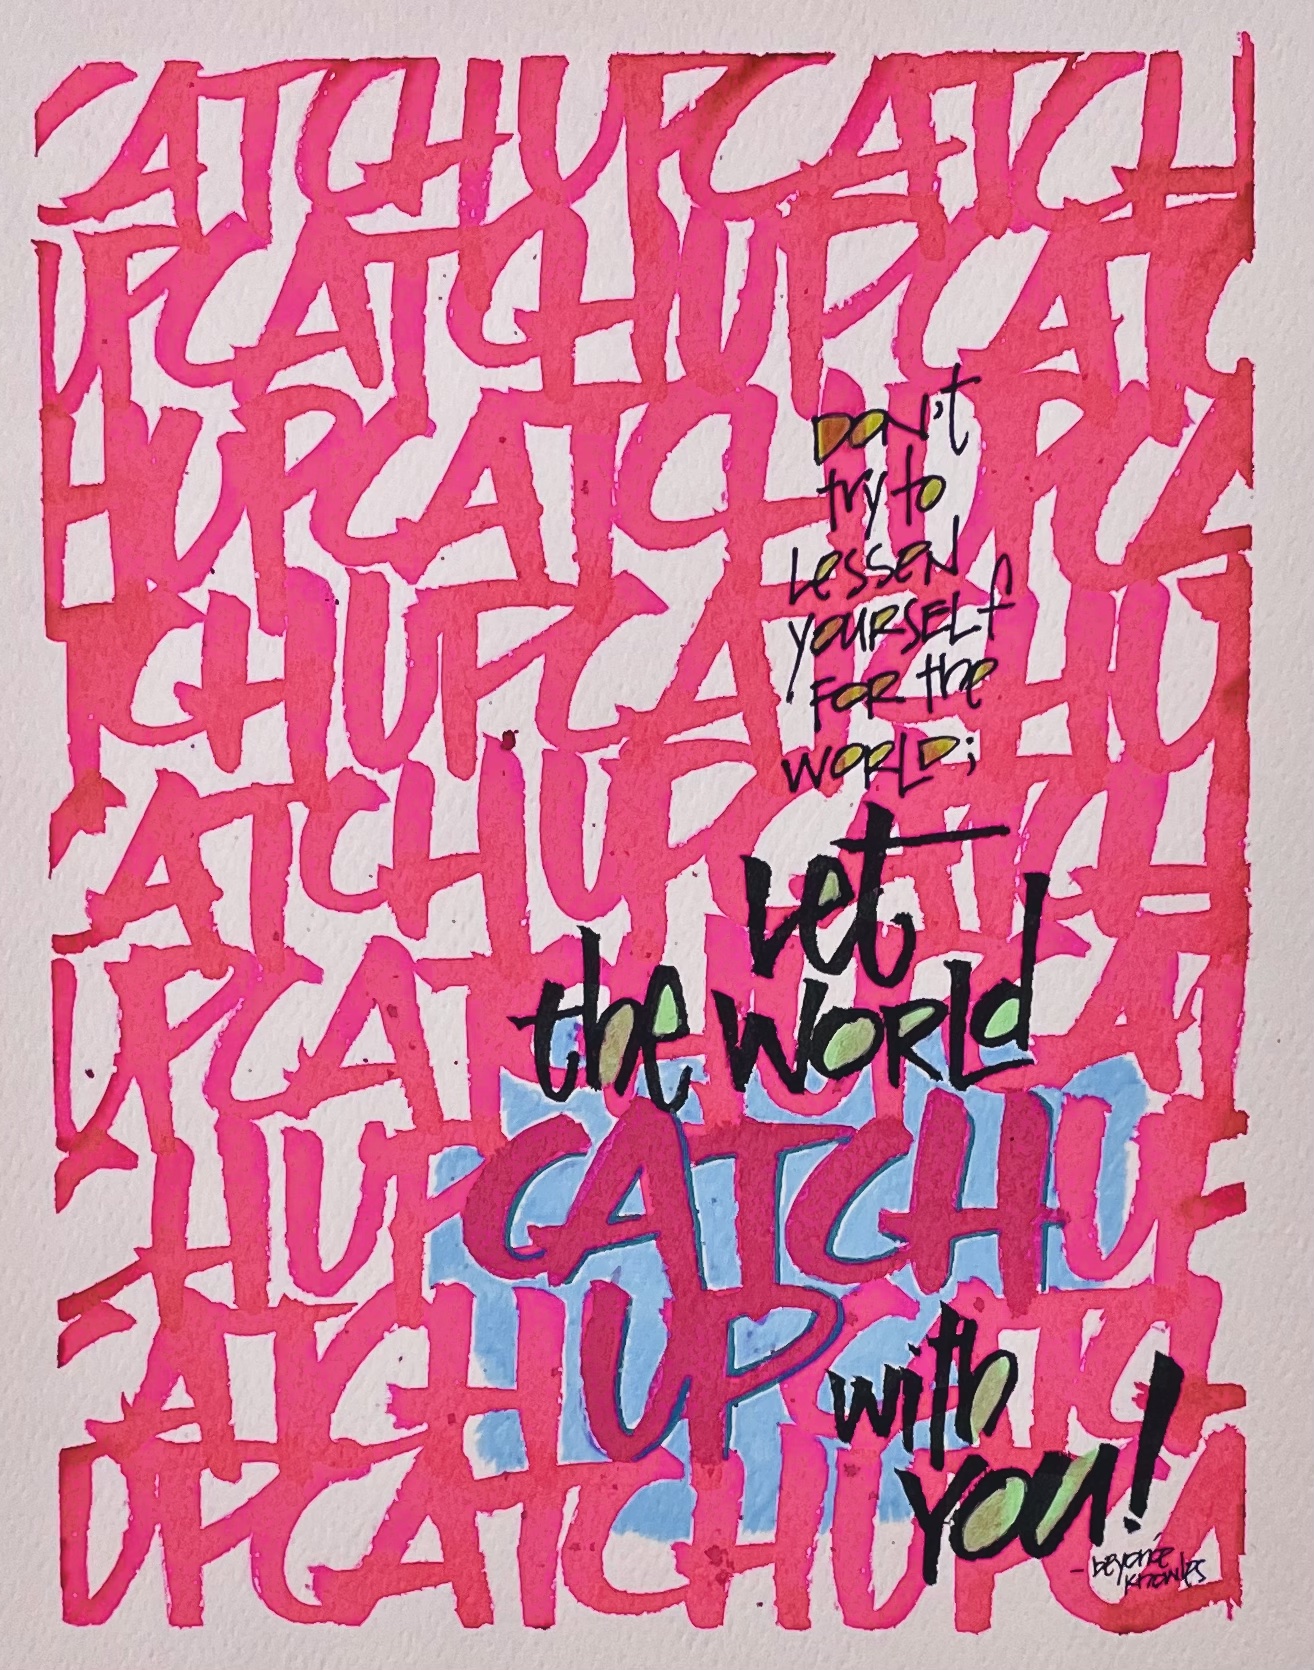 CATCHUPCATCH
UPCATCHUPCATC
HUPCATCHUPCA
TCHUPCATCHU
CATCHUPCATCH
UPCATCHUPCAT
CHUPCATCHUP
CATCHUPCATC
UPCATCHUPCA
DON't
try to
Lessen
YOURSELf
FOR the
WORLD;
Let
the WORLd
CATCH
UP
with
you!
- beyoncé
knowles